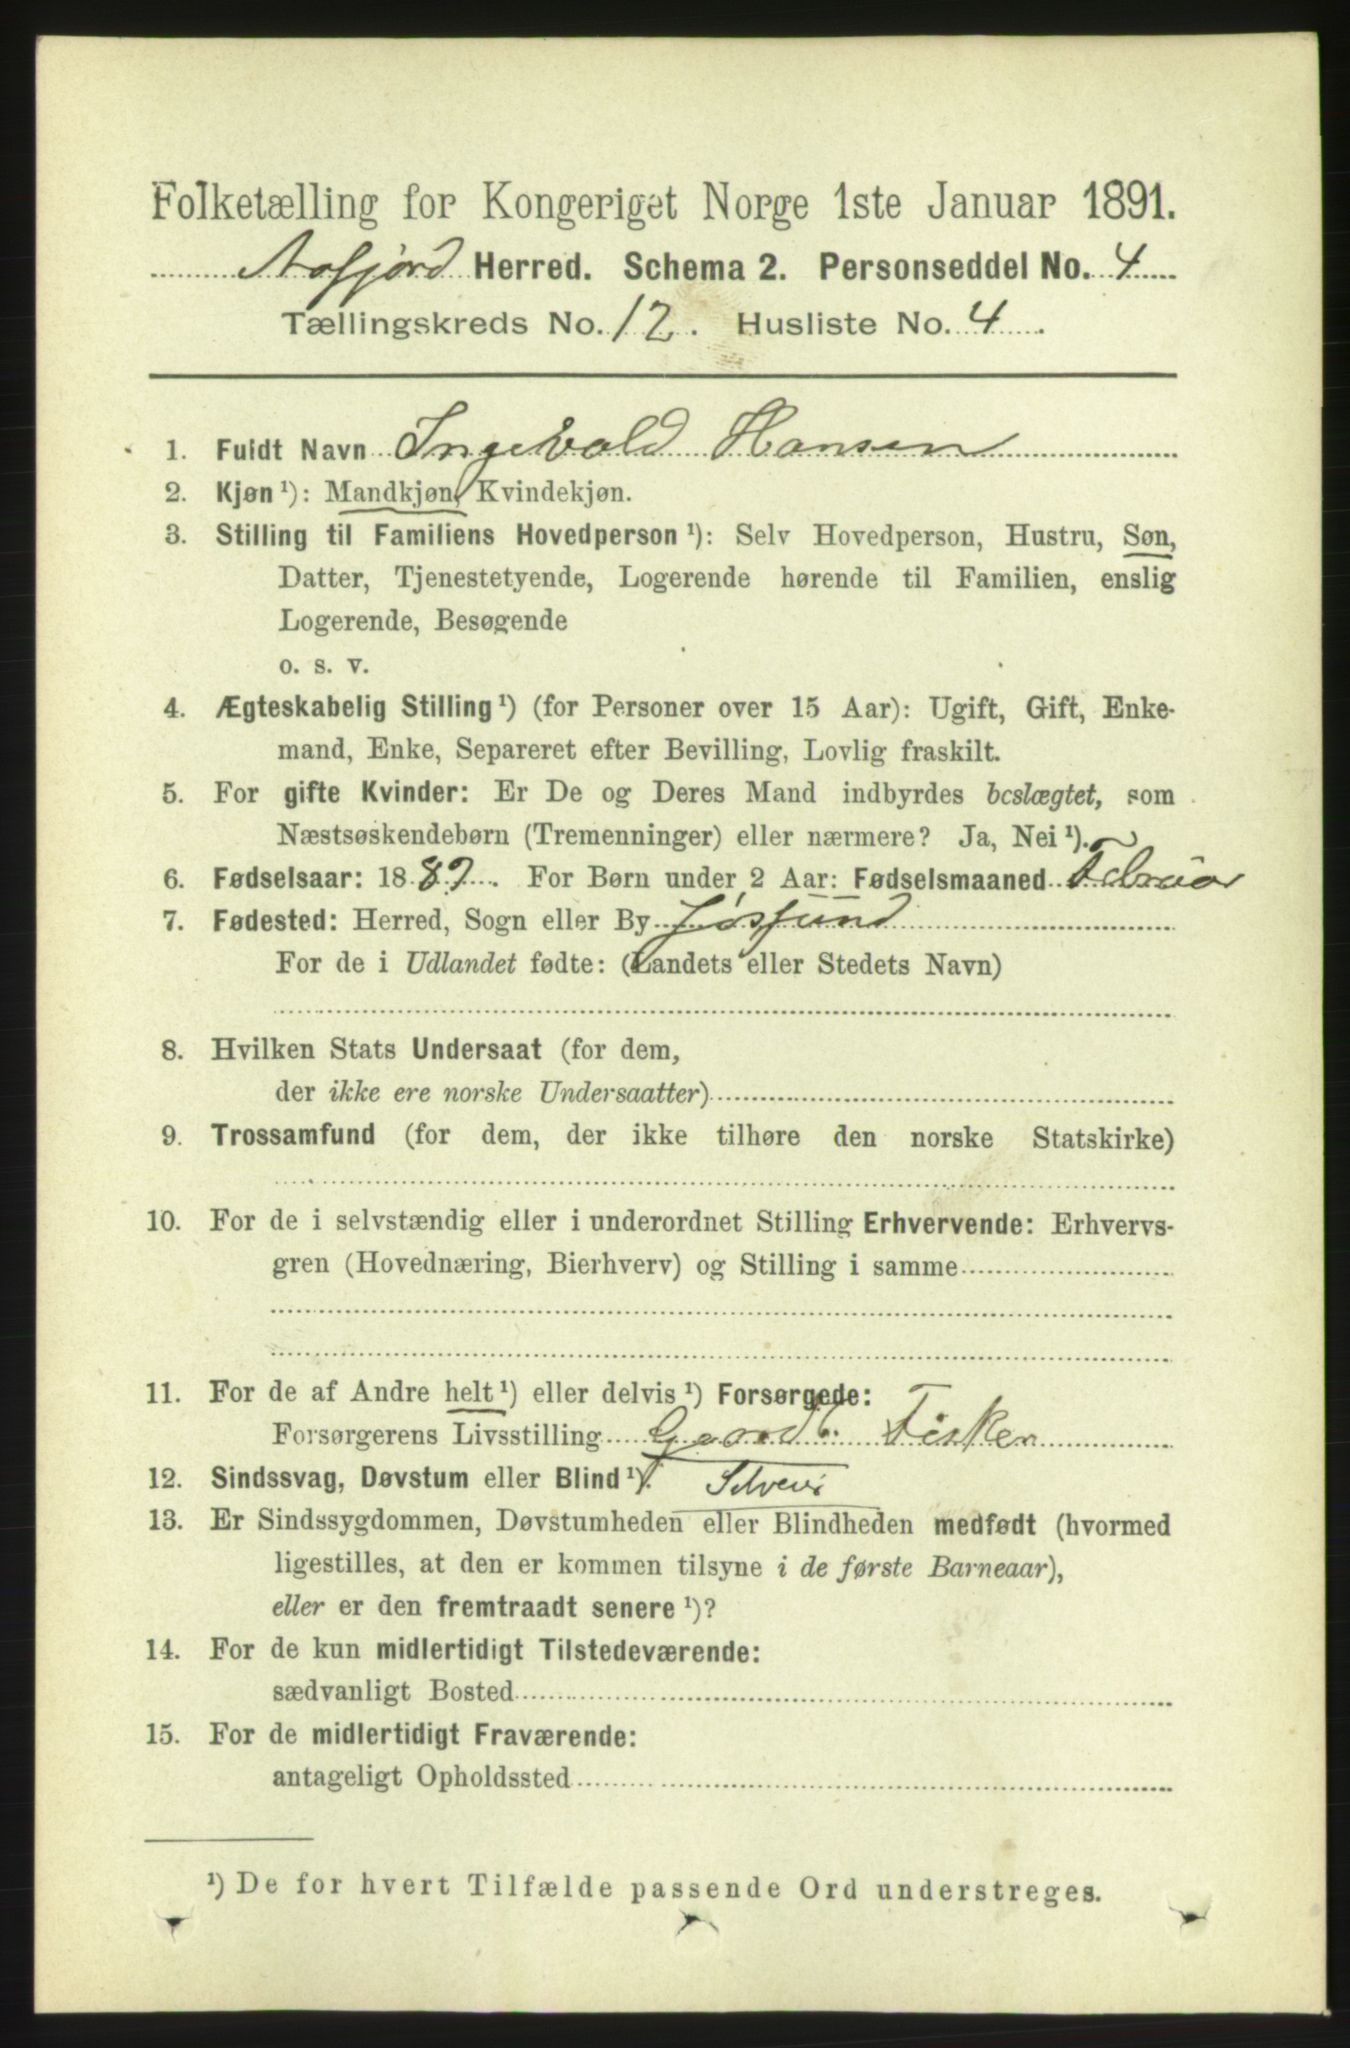 Folketælling for Kongeriget Norge 1ste Januar 1891.
Aafjord Herred. Schema 2. Personseddel No. 4
Tællingskreds No. 12. Husliste No. 4.
1. Fuldt Navn Ingevald Hansen
2. Kjøn ¹): Mandkjøn, Kvindekjøn.
3. Stilling til Familiens Hovedperson ¹): Selv Hovedperson, Hustru, Søn,
Datter, Tjenestetyende, Logerende hørende til Familien, enslig
Logerende, Besøgende
o. s. v.
4. Ægteskabelig Stilling ¹) (for Personer over 15 Aar): Ugift, Gift, Enke-
mand, Enke, Separeret efter Bevilling, Lovlig fraskilt.
5. For gifte Kvinder: Er De og Deres Mand indbyrdes beslægtet, som
Næstsøskendebørn (Tremenninger) eller nærmere? Ja, Nei ¹).
6. Fødselsaar: 1889. For Børn under 2 Aar: Fødselsmaaned Februar
7. Fødested: Herred, Sogn eller By Jøsfund
For de i Udlandet fødte: (Landets eller Stedets Navn)
8. Hvilken Stats Undersaat (for dem,
der ikke ere norske Undersaatter)
9. Trossamfund (for dem, der ikke tilhøre den norske Statskirke)
10. For de i selvstændig eller i underordnet Stilling Erhvervende: Erhvervs-
gren (Hovednæring, Bierhverv) og Stilling i samme
11. For de af Andre helt ¹) eller delvis ¹) Forsørgede:
Forsørgerens Livsstilling Gaardb. Fisker
12. Sindssvag, Døvstum eller Blind ¹). Selveier
13. Er Sindssygdommen, Døvstumheden eller Blindheden medfødt (hvormed
ligestilles, at den er kommen tilsyne i de første Barneaar),
eller er den fremtraadt senere ¹)?
14. For de kun midlertidigt Tilstedeværende:
sædvanligt Bosted
15. For de midlertidigt Fraværende:
antageligt Opholdssted
¹) De for hvert Tilfælde passende Ord understreges.